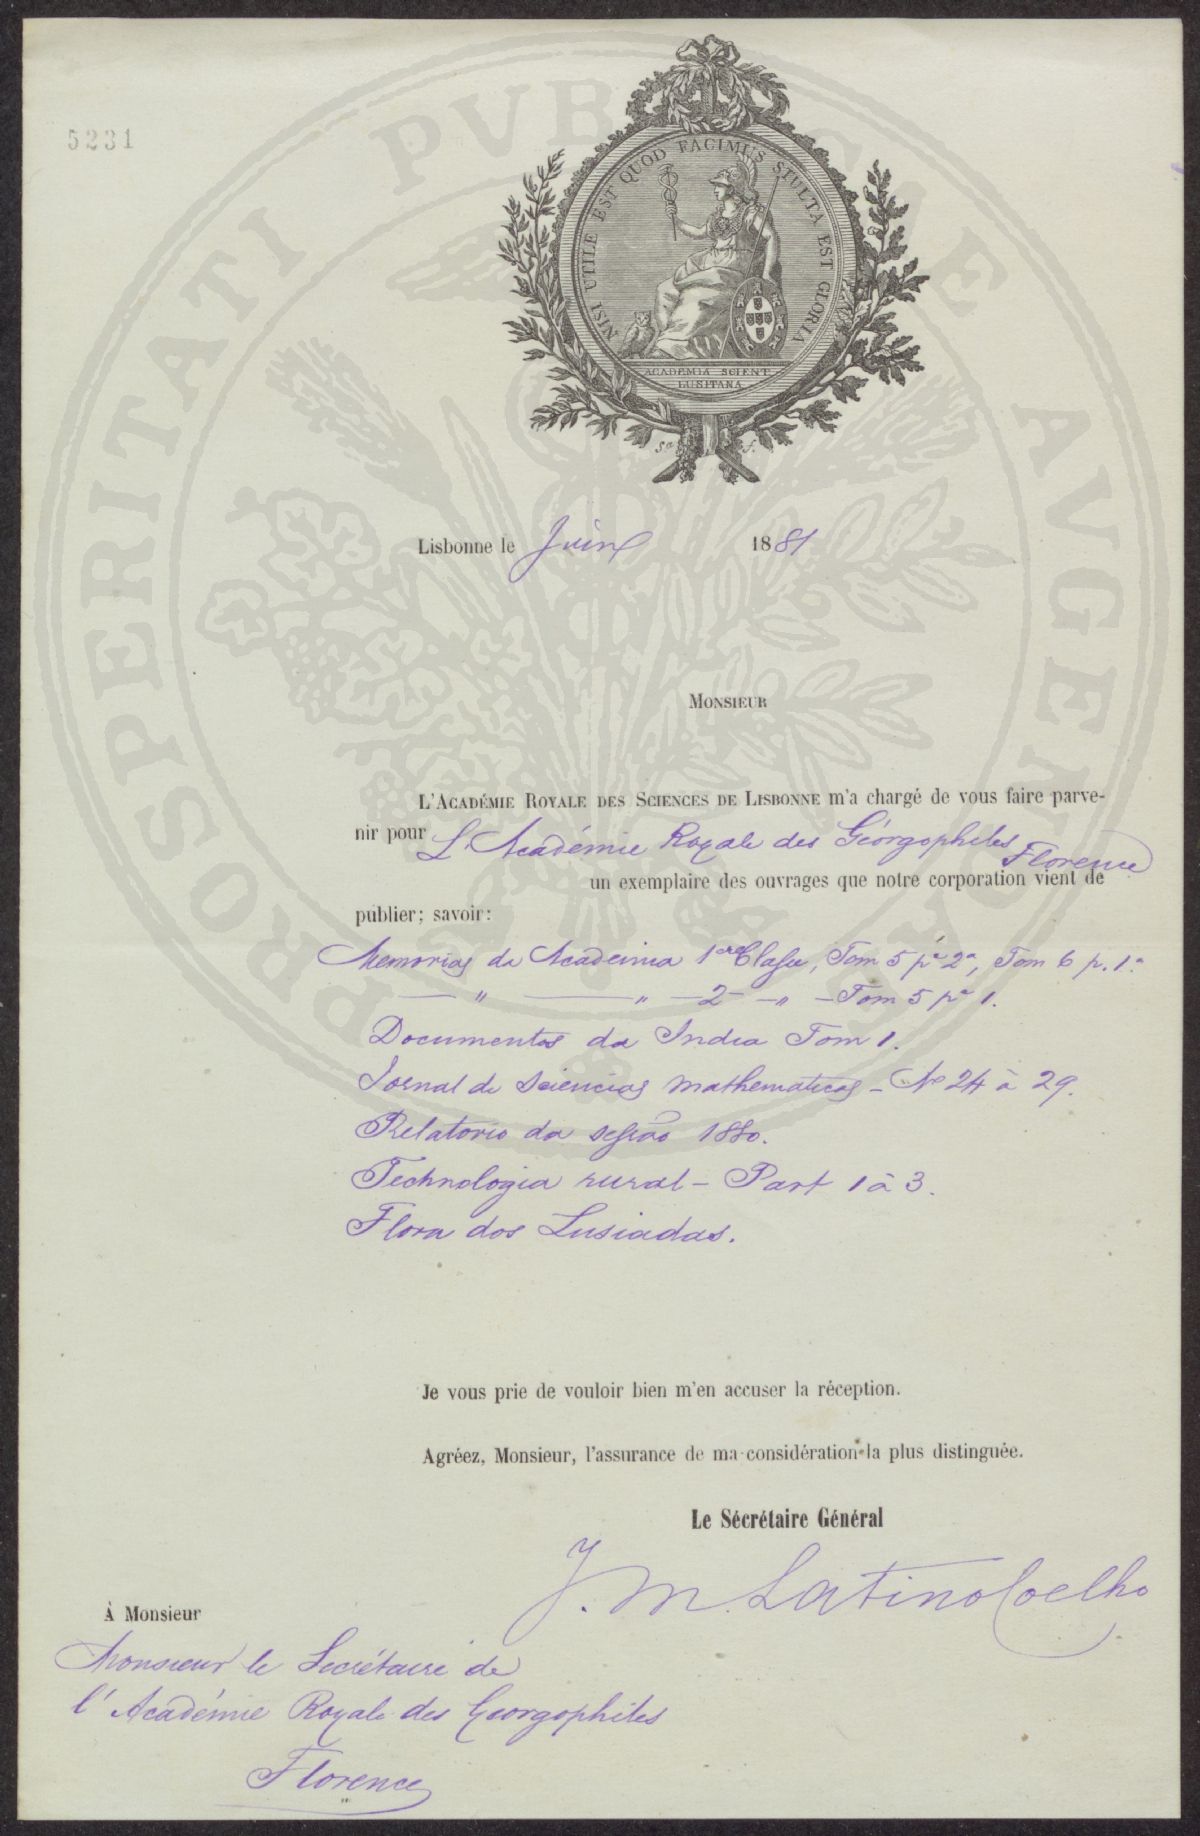 5231
NISI UTILE EST QUOD FACIMUS STULTA EST GLORIA
ACADEMIA SCIENT.
LUSITANA
PROSPERITATI PVBLICAE AVGENDAE
Lisbonne le Juin 1881
MONSIEUR
L'ACADÉMIE ROYALE DES SCIENCES DE LISBONNE m'a chargé de vous faire parve-
nir pour L'Académie Royale des Géorgophiles Florence
un exemplaire des ouvrages que notre corporation vient de
publier; savoir:
Memorias da Academia 1ere Classe, Tom 5 pe 2a, Tom 6 p. 1a
— " — " — 2 — " — Tom 5 pe 1.
Documentos da India Tom 1.
Jornal de Sciencias mathematicas – No 24 à 29.
Relatorio da sessão 1880.
Technologia rural – Part 1 à 3.
Flora dos Lusiadas.
Je vous prie de vouloir bien m'en accuser la réception.
Agréez, Monsieur, l'assurance de ma considération la plus distinguée.
Le Sécrétaire Général
J. M. Latino Coelho
À Monsieur
Monsieur le Secrétaire de
l'Académie Royale des Georgophiles
Florence